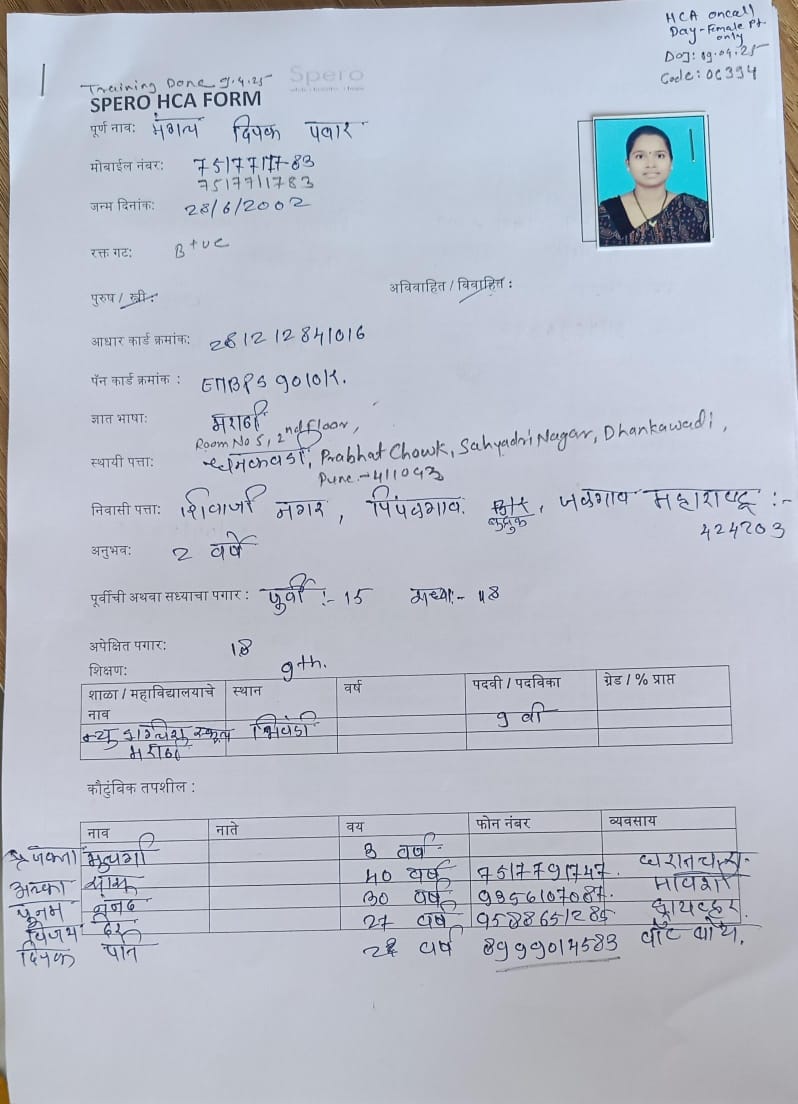 HCA oncall
Day-Female Pt.
only
Doj: 09.04.25
Code: OC394
Training Done 9.4.25
Spero
SPERO HCA FORM
पूर्ण नाव: मंगल दिपक पवार
मोबाईल नंबर: 7517711783
7517711783
जन्म दिनांक: 28/6/2002
रक्त गट: B+ve
पुरुष / स्त्री: अविवाहित / विवाहित :
आधार कार्ड क्रमांक: 281212841016
पॅन कार्ड क्रमांक :
ज्ञात भाषा: मराठी
Room No 5, 2nd Floor,
स्थायी पत्ता: धनकवडी, Prabhat Chowk, Sahyadri Nagar, Dhankawadi,
Pune-411043
निवासी पत्ता: शिवाजी नगर, पिंपळगाव बुद्रुक, जळगाव महाराष्ट्र :-
424203
अनुभव: 2 वर्षे
पूर्वीची अथवा सध्याचा पगार : पूर्वी :- 15 सध्या:- 18
अपेक्षित पगार: 18
शिक्षण: 9th.
शाळा / महाविद्यालयाचे नाव स्थान वर्ष पदवी / पदविका ग्रेड / % प्राप्त
न्यु इंग्लिश स्कूल भिवंडी 9 वी
मराठी
कौटुंबिक तपशील :
नाव नाते वय फोन नंबर व्यवसाय
मुलगी 3 वर्ष
अलका सासू 40 वर्ष 7517791747.
पूनम नंनद 30 वर्ष मावशी
विजय दिर 27 वर्ष ड्रायव्हर.
दिपक पति वर्ष 8999014583